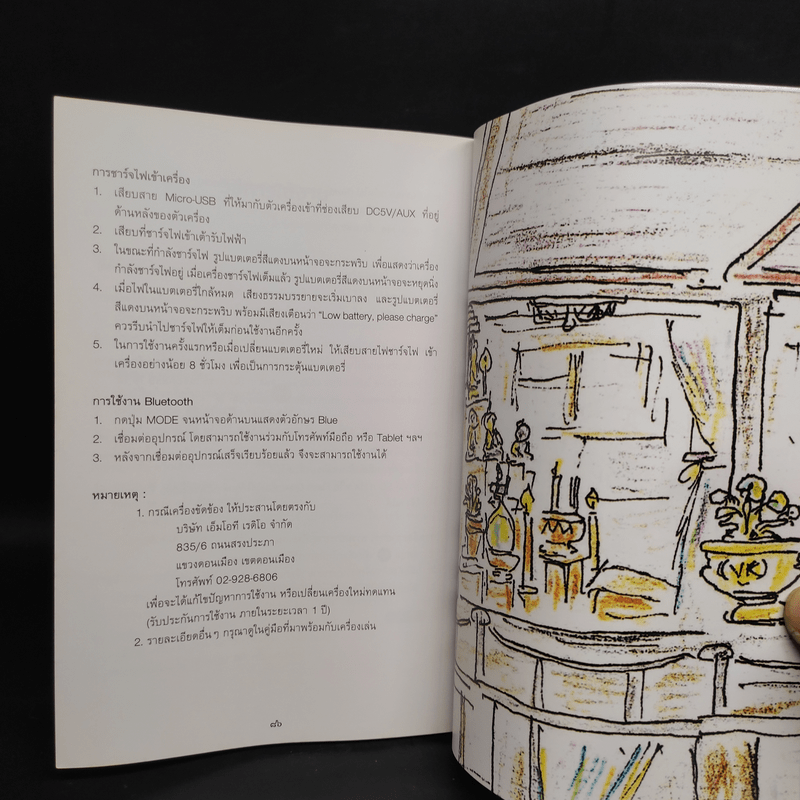 การชาร์จไฟเข้าเครื่อง
1. เสียบสาย Micro-USB ที่ให้มากับตัวเครื่องเข้าที่ช่องเสียบ DC5V/AUX ที่อยู่
ด้านหลังของตัวเครื่อง
2. เสียบที่ชาร์จไฟเข้าเต้ารับไฟฟ้า
3. ในขณะที่กำลังชาร์จไฟ รูปแบตเตอรี่สีแดงบนหน้าจอจะกระพริบ เพื่อแสดงว่าเครื่อง
กำลังชาร์จไฟอยู่ เมื่อเครื่องชาร์จไฟเต็มแล้ว รูปแบตเตอรี่สีแดงบนหน้าจอจะหยุดนิ่ง
4. เมื่อไฟในแบตเตอรี่ใกล้หมด เสียงธรรมบรรยายจะเริ่มเบาลง และรูปแบตเตอรี่
สีแดงบนหน้าจอจะกระพริบ พร้อมมีเสียงเตือนว่า "Low battery, please charge"
ควรรีบนำไปชาร์จไฟให้เต็มก่อนใช้งานอีกครั้ง
5. ในการใช้งานครั้งแรกหรือเมื่อเปลี่ยนแบตเตอรี่ใหม่ ให้เสียบสายไฟชาร์จไฟ เข้า
เครื่องอย่างน้อย 8 ชั่วโมง เพื่อเป็นการกระตุ้นแบตเตอรี่
การใช้งาน Bluetooth
1. กดปุ่ม MODE จนหน้าจอด้านบนแสดงตัวอักษร Blue
2. เชื่อมต่ออุปกรณ์ โดยสามารถใช้งานร่วมกับโทรศัพท์มือถือ หรือ Tablet ฯลฯ
3. หลังจากเชื่อมต่ออุปกรณ์เสร็จเรียบร้อยแล้ว จึงจะสามารถใช้งานได้
หมายเหตุ :
1. กรณีเครื่องขัดข้อง ให้ประสานโดยตรงกับ
บริษัท เอ็มโอที เรดิโอ จำกัด
835/6 ถนนสรงประภา
แขวงดอนเมือง เขตดอนเมือง
โทรศัพท์ 02-928-6806
เพื่อจะได้แก้ไขปัญหาการใช้งาน หรือเปลี่ยนเครื่องใหม่ทดแทน
(รับประกันการใช้งาน ภายในระยะเวลา 1 ปี)
2. รายละเอียดอื่นๆ กรุณาดูในคู่มือที่มาพร้อมกับเครื่องเล่น
(VK)